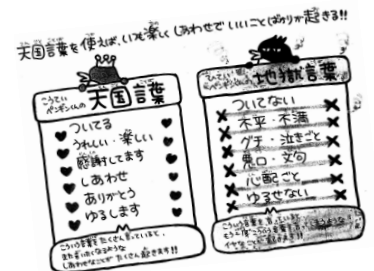 天国言葉を使えば、いつも楽しくしあわせでいいことばかりが起きる!!
こうてい
ペンギンくんの
天国言葉
ついてる
うれしい・楽しい
感謝してます
しあわせ
ありがとう
ゆるします
こういう言葉をたくさん言っていると、
また言いたくなるような
しあわせなことがたくさん起きます!!
ひてい
ペンギンくんの
地獄言葉
ついてない
不平・不満
グチ・泣きごと
悪口・文句
心配ごと
ゆるせない
こういう言葉を言っていると、
もう一度こういう言葉を言ってしまうような
イヤなことが起きます!!